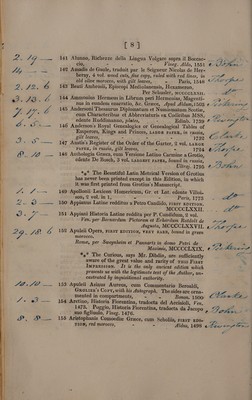 [ 8 ]
2. 19 — 141 Alunno, Richezze della Lingua Volgare sopra il Boccac-
cio, Vineg. Aldo, 1551
142 Amadis de Gaule, traduit par le Seigneur Nicolas de Her-
beray, 4 vol. wood cuts, fine copy, ruled with red lines, in
old olive morocco, with gilt leaves, Paris, 1548
2. 12. 6 143 Beati Ambrosii, Episcopi Mediolanensis, Hexameron.
Per Schussler, MCCCCLXXII.
3. 13. 6 144 Ammonius Hermeæ in Librum peri Hermenias, Magenti-
nus in eundem enarratio, &c. Græce, Apud Aldum, 1503
7. 17. 6 145 Andersoni Thesaurus Diplomatum et Numismatum Scotiæ,
cum Characteribus et Abbreviaturis ex Codicibus MSS.
edente Ruddimanno, plates, Edinb. 1739
6. 5 — 146 Anderson's Royal Genealogies or Genealogical Tables of
Emperors, Kings and Princes, LARGE PAPER, in russia,
gilt leaves, 1732
3. 5 — 147 Anstis's Register of the Order of the Garter, 2 vol. LARGE
PAPER, in russia, gilt leaves, 1724
8. 10 — 148 Anthologia Græca, cum Versione Latina Curante a Grotio,
edente De Bosch, 5 vol. LARGEST PAPER, bound in russia,
Ultraj. 1795
*** The Beautiful Latin Metrical Version of Grotius
has never been printed except in this Edition, in which
it was first printed from Grotius's Manuscript.
1. 1 — 149 Apollonii Lexicon Homericum, Gr. et Lat. edente Villoi-
son, 2 vol. in 1, Paris, 1773
2. 3 — 150 Appianus Latine redditus a Petro Candido, FIRST EDITION.
MCCCCLXXII.
3. 7 — 151 Appiani Historia Latine reddita per P. Candidum, 2 vol.
Ven. per Bernardum Pictorem et Erhardum Ratdolt de
Augusta, MCCCCLXXVII.
29. 18. 6 152 Apuleii Opera, FIRST EDITION, VERY RARE, bound in green
morocco.
Romæ, per Sweynheim et Pannartz in domo Petri de
Maximis, MCCCCLXIX.
*** The Curious, says Mr. Dibdin, are sufficiently
aware of the great value and rarity of THIS FIRST
IMPRESSION. It is the only ancient edition which
presents us with the legitimate text of the Author, un-
castrated by inquisitorial authority.
10. 10 — 153 Apuleii Asinus Aureus, cum Commentario Beroaldi,
GROLIER'S COPY, with his Autograph. The sides are orna-
mented in compartments, Bonon. 1500
1. 3 — 154 Aretino, Historia Fiorentina, tradotta del Archioli, Ven.
1476. Poggio, Historia Fiorentina, tradotta da Jacopo
suo figliuolo, Vineg. 1476.
8. 8 — 155 Aristophanis Comœdiæ Græce, cum Scholiis, FIRST EDI-
TION, red morocco, Aldus, 1498